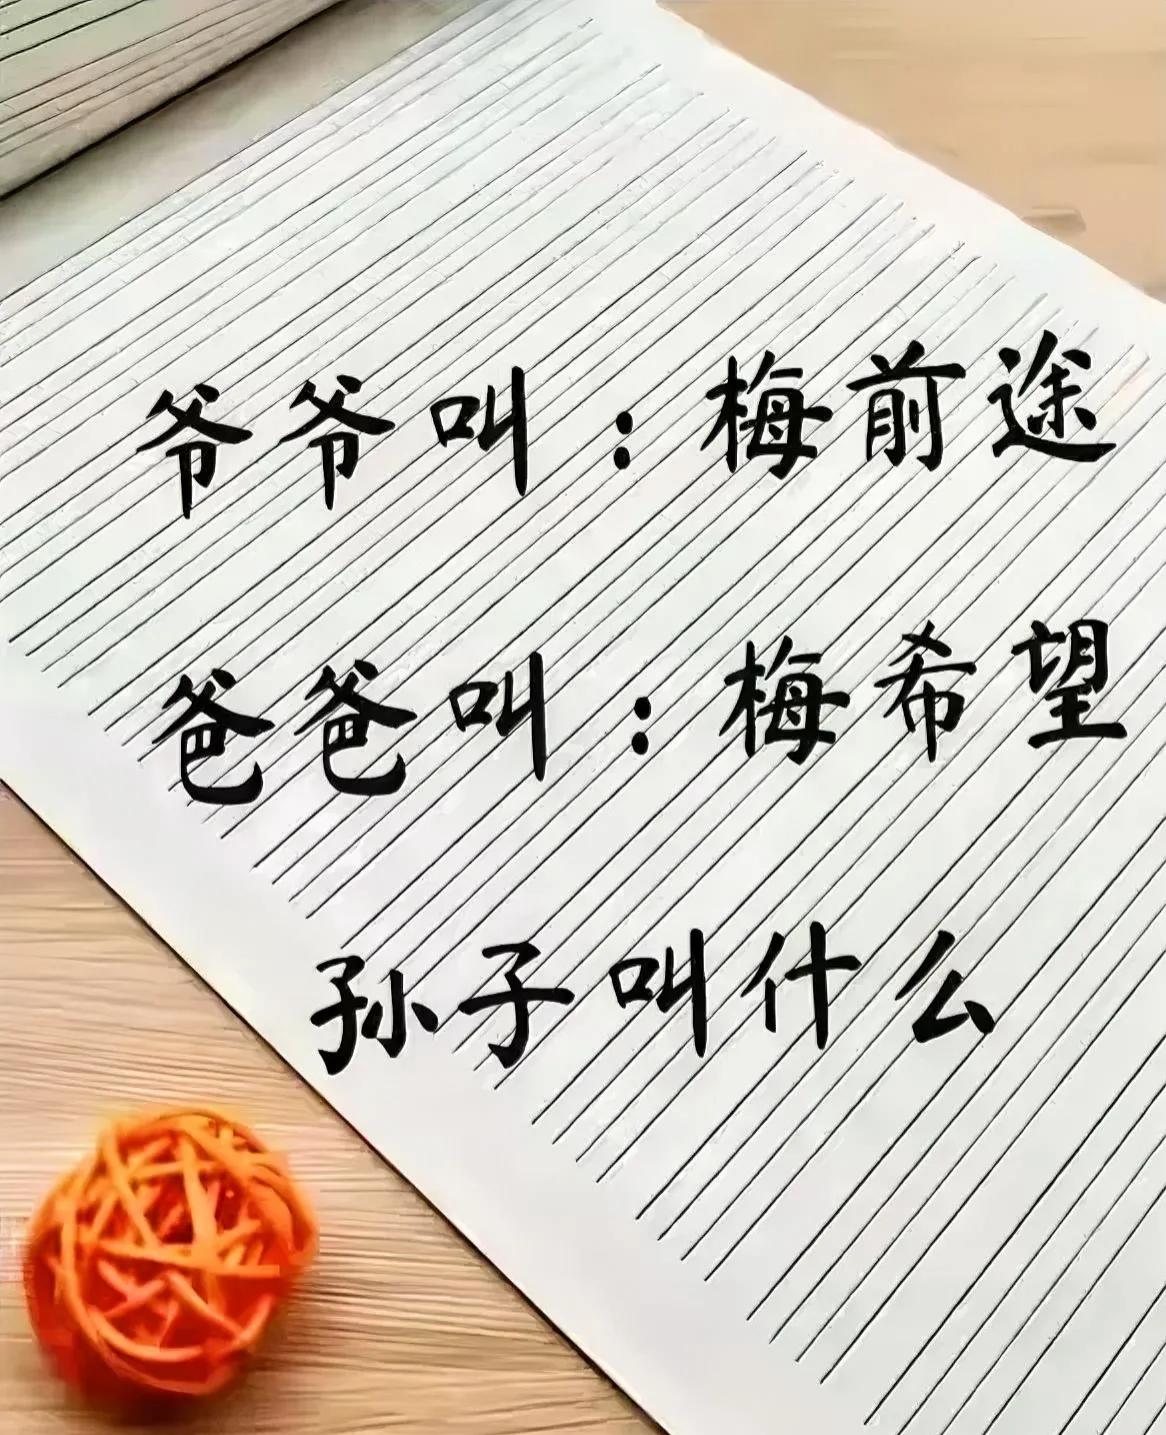 爷爷叫：梅前途
爸爸叫：梅希望
孙子叫什么